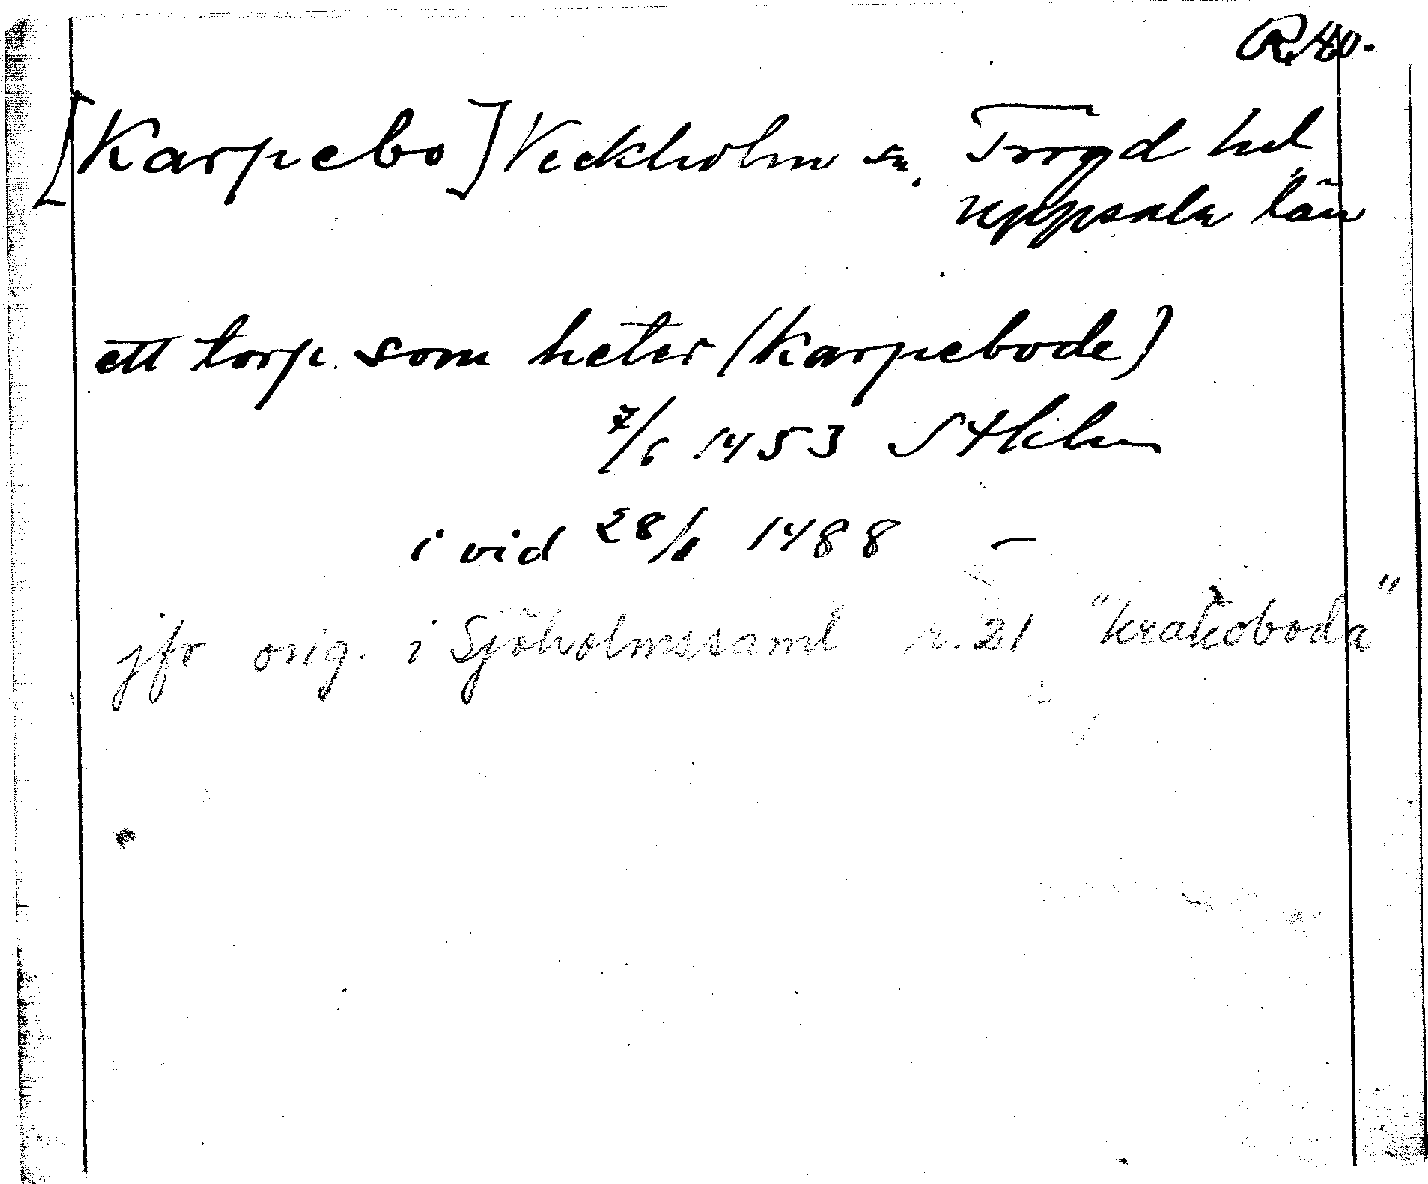 R. 40.
[Karpebo] Veckholm sn. Trögd hd
Uppsala län
ett torp som heter (Karpebode)
7/6 1453 Sthlm
i vid 28/6 1488 –
jfr orig. i Sjöholmssaml n. 21 "krakoboda"